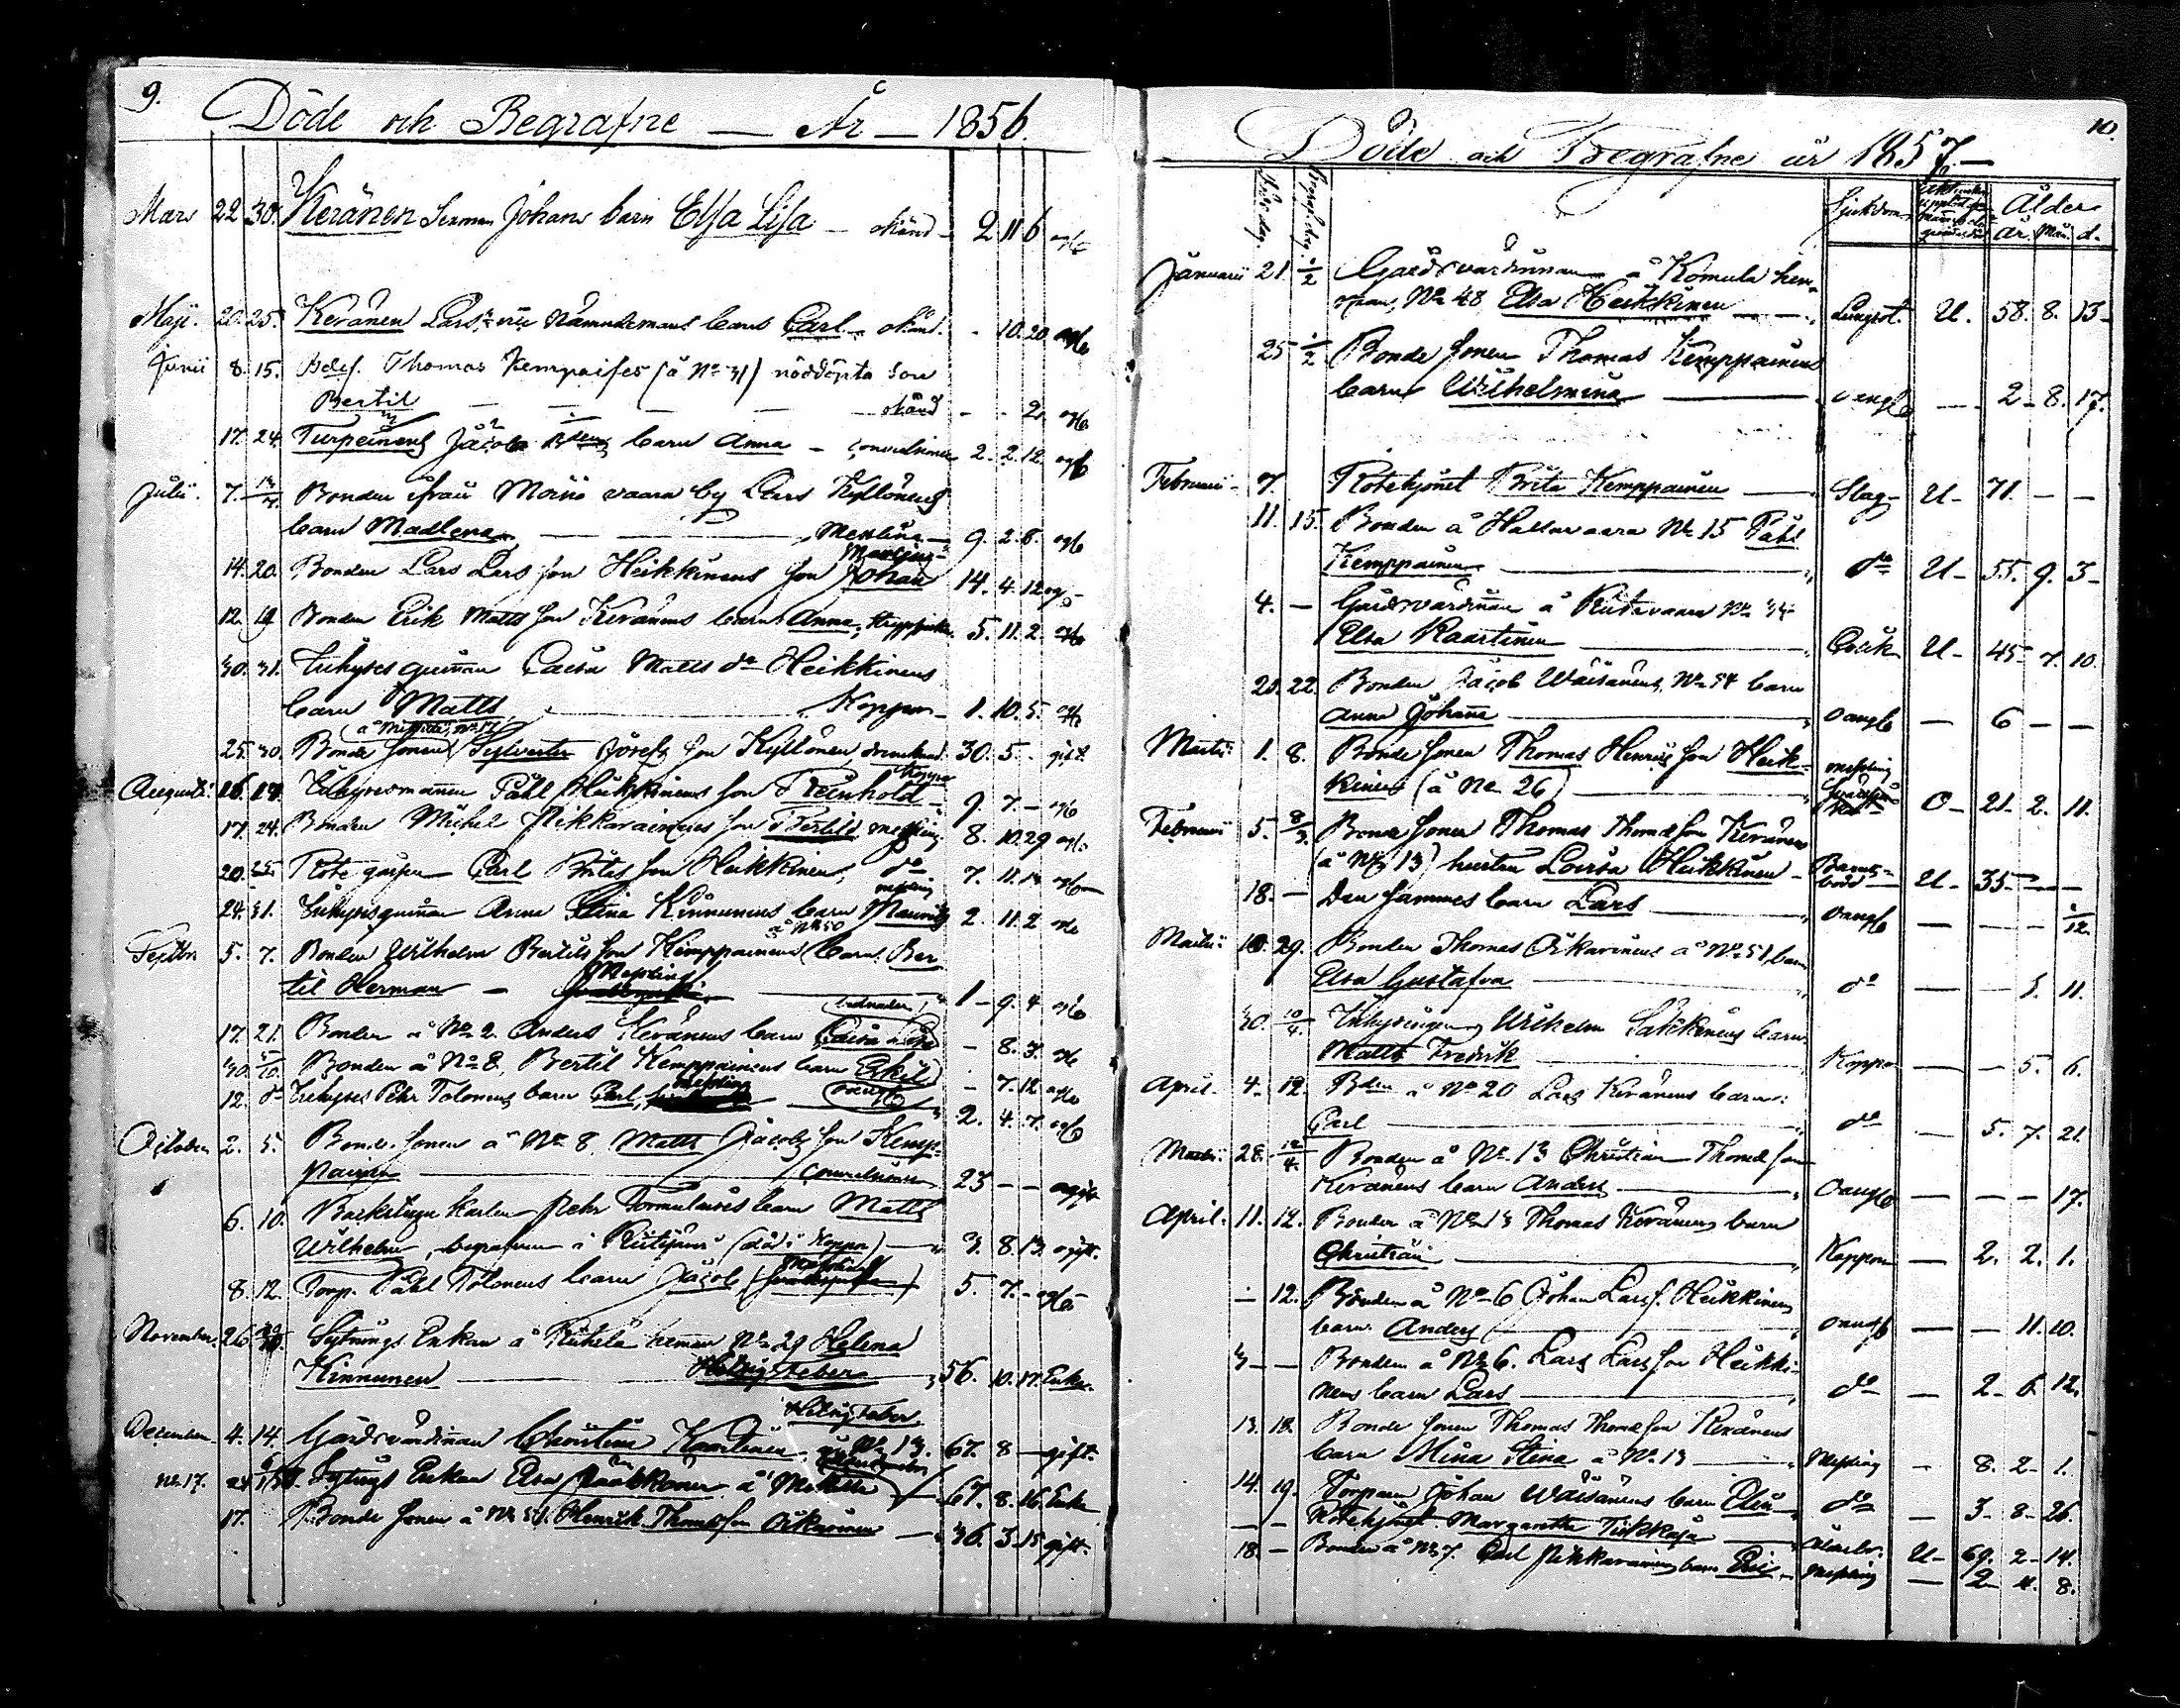 9.
Döde och Begrafne — År — 1856.
Mars 22 30. Keränen Johans barn Elsa Lisa — okänd — 2 11 6 ogft
Maji. 20. 25. Keränen Lars, Nämndemans barn Carl — okänd. - 10. 20 ogft
Junii 8. 15. Thomas Kempaises (å No 31) nöddöpta son
Bertil — — — — okänd - - 2. ogft
17. 24. Turpeinens Jacob barn Anna — convulsioner 2. 2. 12. ogft
Julii. 7. Bonden ifrån vaara by Lars Kyllönens
barn Madlena — — Messling — 9. 2. 6. ogft
14. 20. Bonden Lars Lars son Heikkinens son Johan 14. 4. 12 og
12. 19 Bonden Erik Matts son Keränens barn Anna, 5. 11. 2. ogft
30. 31. Inhyses quinnan Caisa Matts dr Heikkinens
barn Matts — Koppor — 1. 10. 5. ogft
25. 30. Bonde sonen Sylvester Josefs son Kyllönen, drunknad 30. 5. - gift
Koppor
Augusti: 16. 17. Inhysesmannen Påhl Heikkinens son Reinhold — 9. 7. — ogft
17. 24. Bonden Michel Pikkarainens son Bertil messling 8. 10. 29 ogft
20. Rote Carl Britas son Heikkinen, do 7. 11. ogft
messling
24. 31. Inhyses quinnan Anna Stina Kinnunens barn Mauritz 2. 11. 2 ogft
å No 50
5. 7. Bonden Wilhelm Bertils son Kemppainens barn Ber
til Herman — Messling — 1 — 9. 4 ogft
17. 21. Bonden å No 2. Anders Keränens barn Caisa - 8. 3. ogft
30. 5/10. Bonden å No 8, Bertil Kemppainens barn Eskil - 7. 12 ogft
messling
12. do Inhyses Pehr Tolonens barn Carl, oangft 2. 4. 7. ogft
October 2. 5. Bonde sonen å No 8, Matts Jacobs son Kemp-
painen — Convulsioner 23 — — ogift
6. 10. Pehr barn Matts
Wilhelm, begrafven i (död i Koppor) — 3. 8. 13. ogift.
Messling
8. 12. Torp. Påhl Tolonens barn Jacob 5. 7. - ogft.
November. 26. Sytnings Enkan å heman No 29 Helena
Kinnunen — 56. 10. 17. Enka.
December 4. 14. Gårdsvärdinnan Christina Kaartinen, å No 13. 67. 8 — gift.
No 17. Sytings Enkan Elsa Pääkkönen å Mikkilä — 67. 8. 16. Enka
17. Bonde sonen å No 51. Henrik Thomas son Oikarinen — 36. 3. 15 gift.
10.
Döde och Begrafne år 1857.—
Sjukdom
Ålder
år. mån. d.
Januarii 21. 1/2 Gårdsvärdinnan å Komula hem-
man, No 48 Elsa Heikkinen — Lungsot. U. 58. 8. 13-
25 1/2 Bonde sonen Thomas Kemppainens
barn Wilhelmina — oangft — 2 - 8. 17.
Februarii - 7. Rotehjonet Brita Kemppainen — Slag - U - 71. — —
11. 15. Bonden å Hallavaara No 15 Påhl
Kemppainen — do U - 55. 9. 3 -
4. — Gårdsvärdinnan å No 34
Elsa Kaartinen — Colik U - 45 - 7. 10.
20. 22. Bonden Jacob Wäisänens, No 54 barn
Anna Johana — oangft — 6 — —
Martii 1. 8. Bonde sonen Thomas Henriks son Heik-
kinen (å No 26) — messling O — 21. 2. 11.
Februarii 5. 8/3. Bonde sonen Thomas Thomas son Keränens
(å No 13) hustru Lovisa Heikkinen — Barns-
börd — U - 35 — —
18. — Den sammes barn Lars — oangft — — — 12.
Martii 10. 29. Bonden Thomas Oikarinens å No 51, barn
Elsa Gustafva — do — — 11.
30. 10/4. Inhysingen Wilhelm barn
Matts Fredrik — Koppor — — 5. 6.
April. 4. 12. Bden å No 20 Lars Keränens barn:
Carl — do — 5. 7. 21.
Martii. 28. 12/4. Bonden å No 13 Christian Thomas son
Keränens barn Anders — oangft — — — 17.
April. 11. 12. Bonden å No 13 Thomas Keränens barn
Christian — Koppor — 2. 2. 1.
— 12. Bonden å No 6 Johan Lars s. Heikkinens
barn Anders — oangft — — 11. 10.
3 — — Bonden å No 6. Lars Lars son Heikki-
nens barn Lars — do — 2 - 6 12.
13. 18. Bonde sonen Thomas Thomas son Keränens
barn Mina Stina å No 13 — messling - 8. 2 - 1.
14. 19. Torparen Johan Wäisänens barn Elin — do — 3 - 8 - 26.
— — Rotehjonet Margaretha — ålderbr. U - 69. 2 - 14.
18. — Bonden å No 7. Carl Pikkarainens barn — messling — 2 - 11. 8.